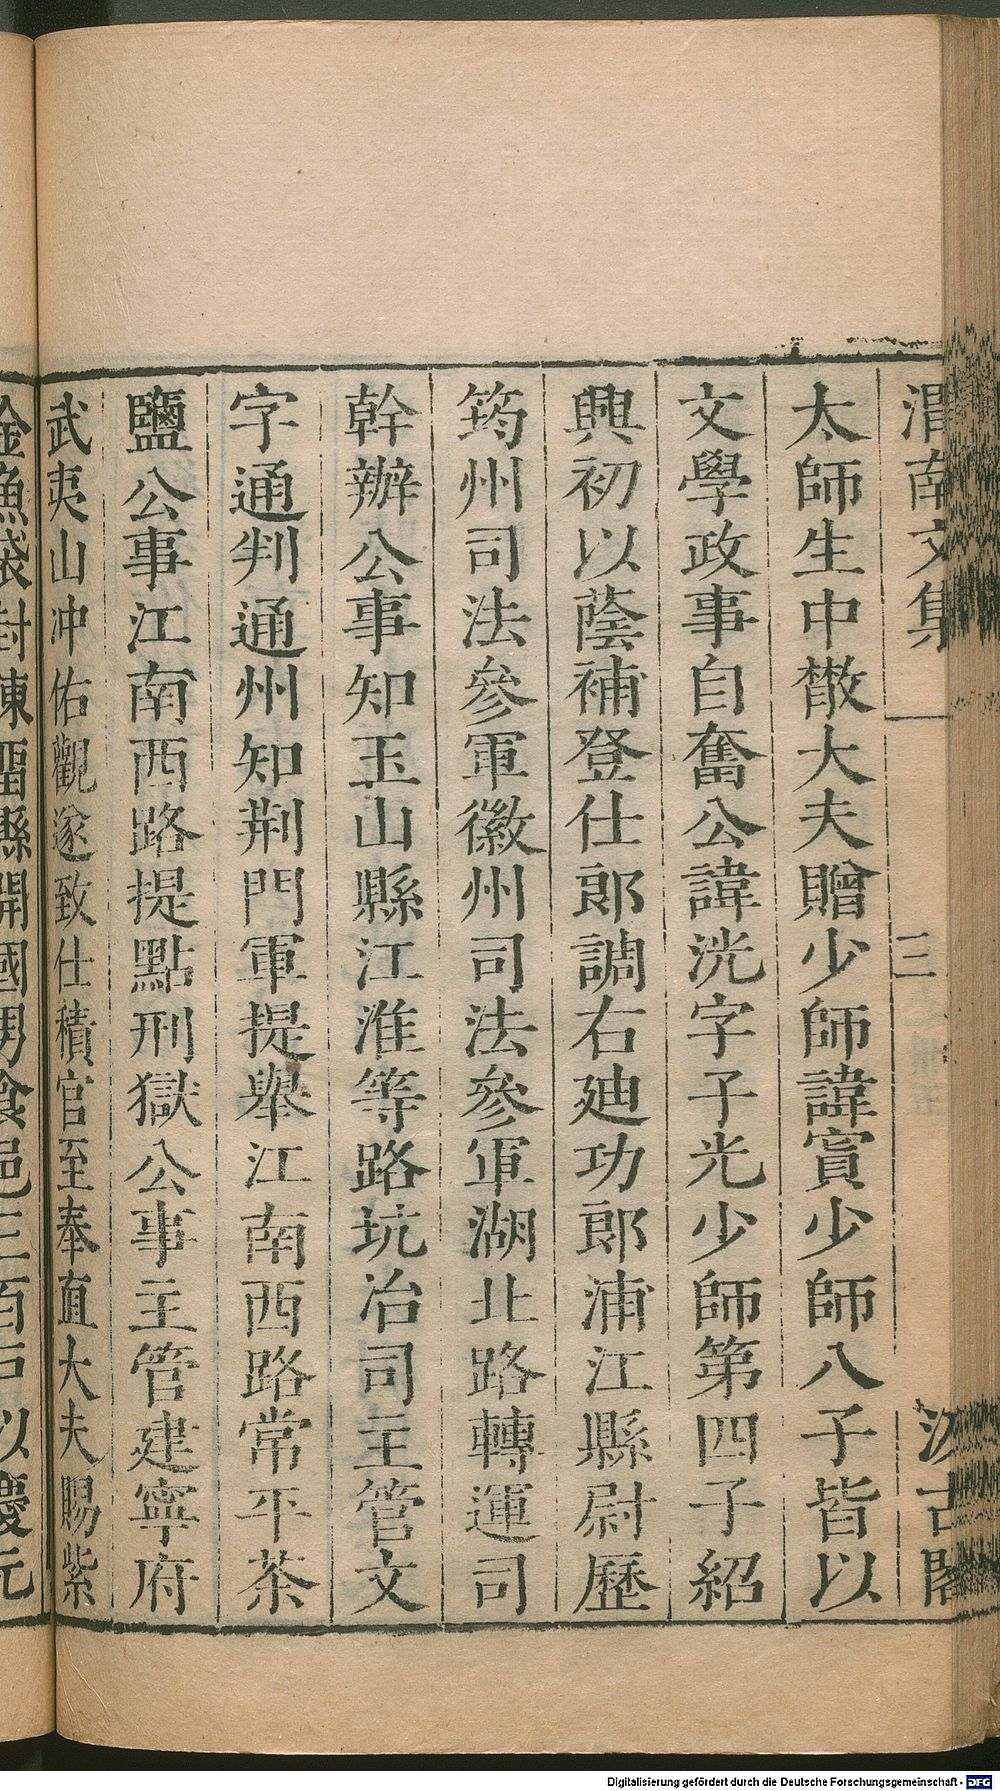 渭南文集 三 汲古閣
太師生中散大夫贈少師諱寘少師八子皆以
文學政事自奮公諱洸字子光少師第四子紹
興初以蔭補登仕郎調右迪功郎浦江縣尉歷
筠州司法參軍徽州司法參軍湖北路轉運司
幹辦公事知玉山縣江淮等路坑冶司主管文
字通判通州知荆門軍提舉江南西路常平茶
鹽公事江南西路提點刑獄公事主管建寧府
武夷山冲佑觀遂致仕積官至奉直大夫賜紫
金魚袋封陳留縣開國男食邑三百戶以慶元
Digitalisierung gefördert durch die Deutsche Forschungsgemeinschaft - DFG